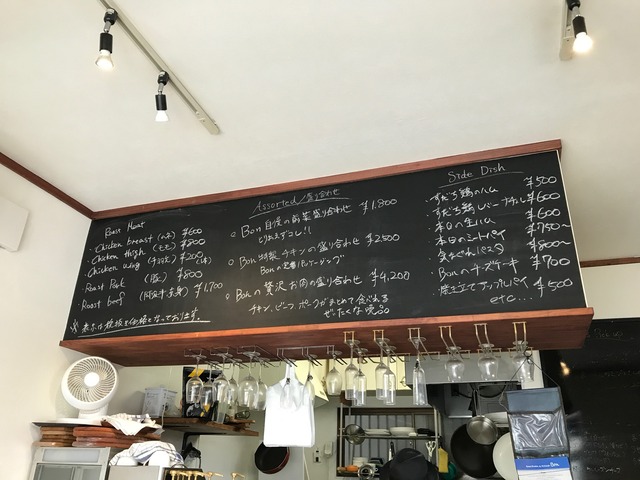 Roast Meat
・Chicken breast (ムネ) ¥600
・Chicken thigh (モモ) ¥800
・Chicken wing (手羽元) ¥200 (1本)
・Roast Pork (豚) ¥800
・Roast beef ¥1,700
※表示は税抜き価格となっております
Assorted/盛り合わせ
○Bon 自慢の前菜盛り合わせ ¥1,800
とりあえずコレ!!
○Bon 特製 チキンの盛り合わせ ¥2500
Bonの定番
○Bonの贅沢 お肉の盛り合わせ ¥4,200
チキン、ビーフ、ポークがまとめて食べれる
ぜいたくな逸品
Side Dish
・すだち鶏のハム ¥500
・すだち鶏レバー ¥600
・本日の生ハム ¥600
・本日のミートパイ ¥750~
・食べくらべパスタ ¥800~
・Bonのチーズケーキ ¥700
・焼き立てアップルパイ ¥500
etc...